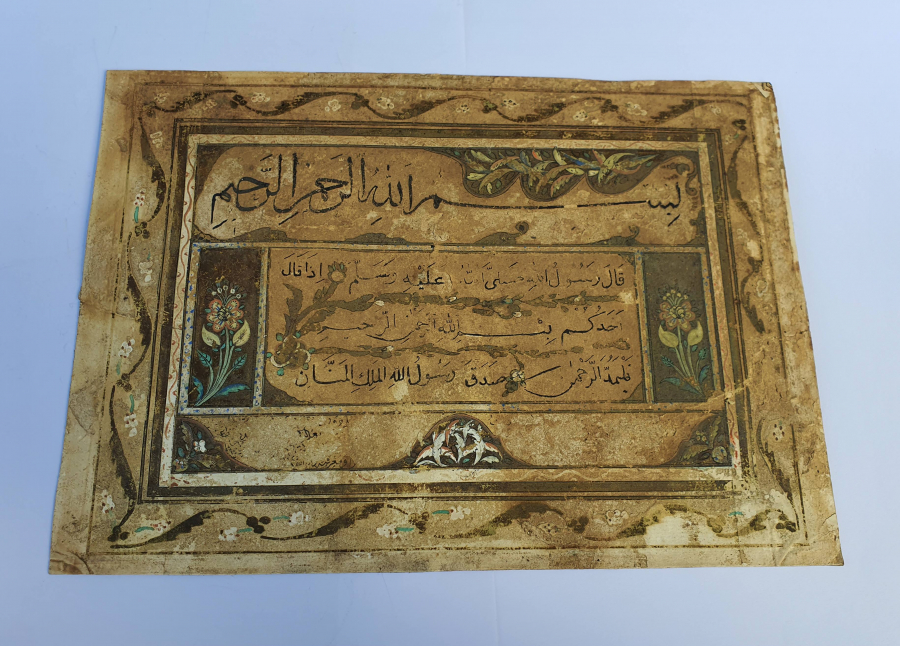 بِسْمِ اللهِ الرَّحْمٰنِ الرَّحِيمِ
قَالَ رَسُولُ اللهِ صَلَّى اللهُ عَلَيْهِ وَسَلَّمَ اِذَا قَالَ
اَحَدُكُمْ بِسْمِ اللهِ الرَّحْمٰنِ الرَّحِيمِ
فَلْيَمُدَّ الرَّحْمٰنَ صَدَقَ رَسُولُ اللهِ الْمَلِكِ الْمَنَّانِ